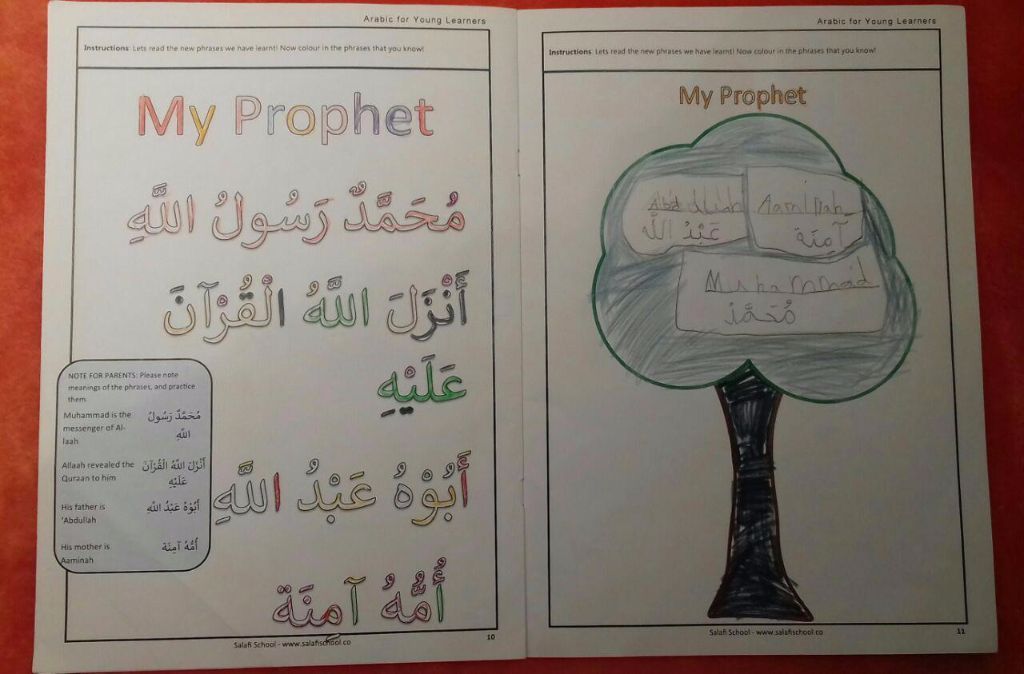 Arabic for Young Learners
Instructions: Lets read the new phrases we have learnt! Now colour in the phrases that you know!
My Prophet
مُحَمَّدٌ رَسُولُ اللَّهِ
أَنْزَلَ اللَّهُ الْقُرْآنَ
عَلَيْهِ
أَبُوْهُ عَبْدُ اللَّهِ
أُمُّهُ آمِنَة
NOTE FOR PARENTS: Please note
meanings of the phrases, and practice
them
Muhammad is the مُحَمَّدٌ رَسُولُ
messenger of Al- اللَّهِ
laah
Allaah revealed the أَنْزَلَ اللَّهُ الْقُرْآنَ
Quraan to him عَلَيْهِ
His father is أَبُوْهُ عَبْدُ اللَّهِ
'Abdullah
His mother is أُمُّهُ آمِنَة
Aaminah
Salafi School - www.salafischool.co
10
Arabic for Young Learners
Instructions: Lets read the new phrases we have learnt! Now colour in the phrases that you know!
My Prophet
Abdullah
عَبْدُ اللَّه
Aaminah
آمِنَة
Muhammad
مُحَمَّدٌ
Salafi School - www.salafischool.co
11